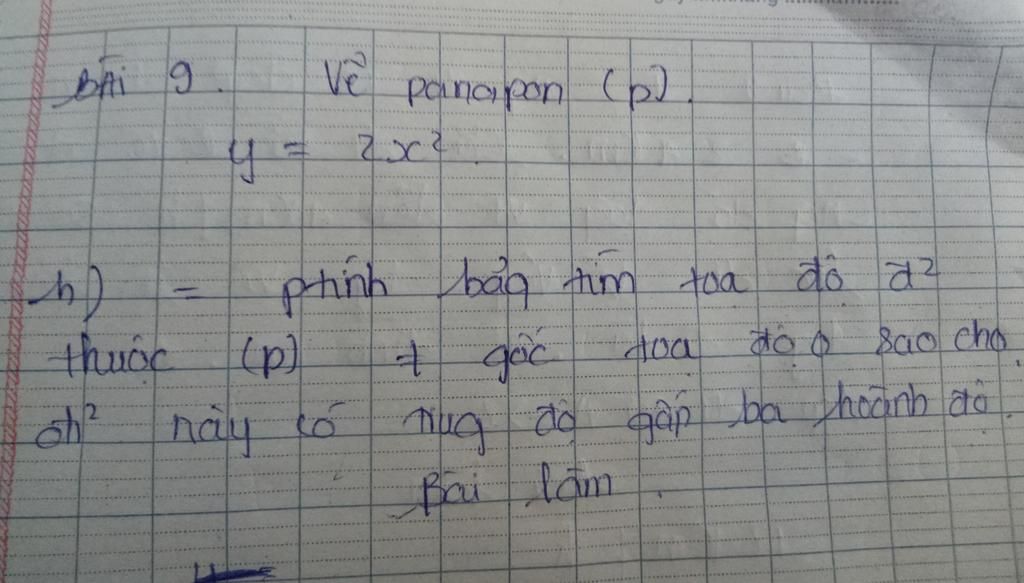 Bài 9. Vẽ panapon (p).
y = 2x².
b) = phính bảg tìm toa độ đ²
thuộc (p) ≠ gốc toa độ 0 sao cho
đ² này có tug độ gấp ba hoành độ.
Bài làm.